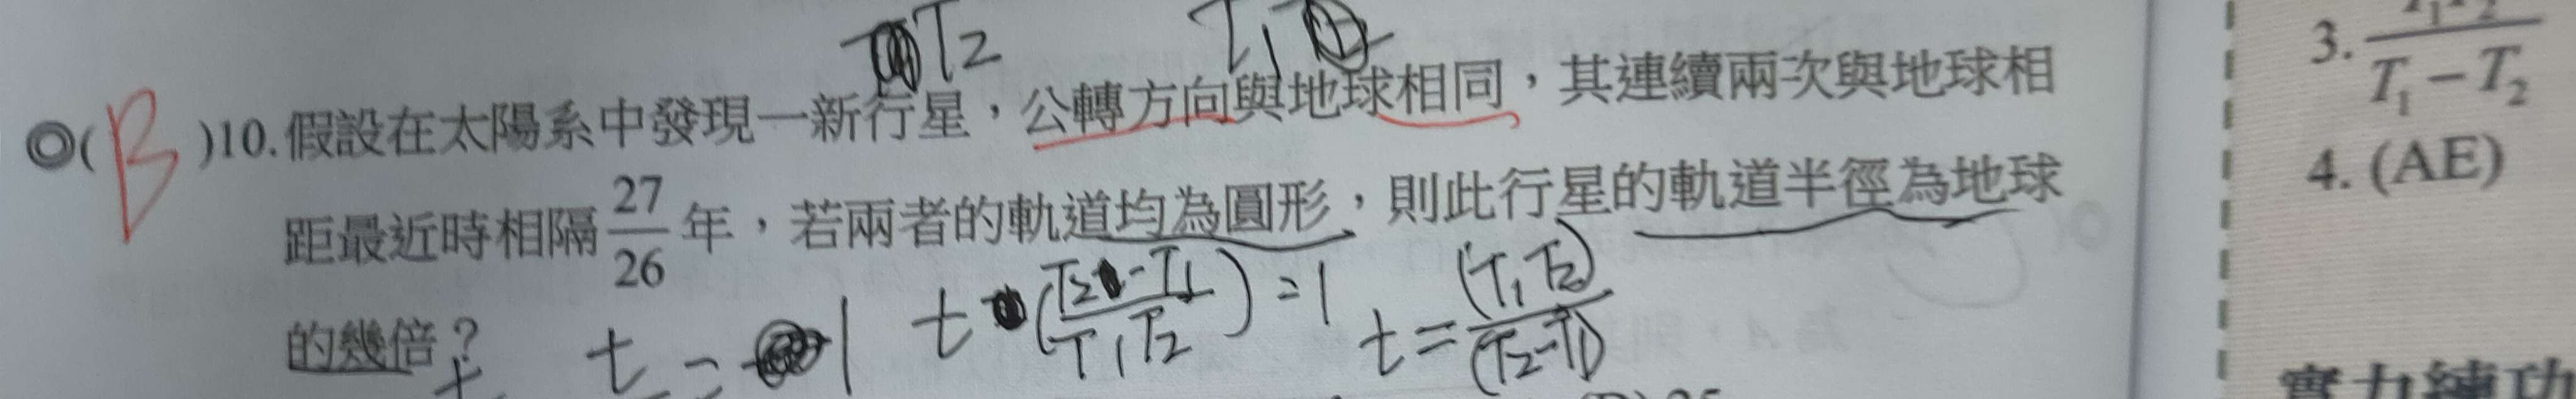 T2 T1
◎( B )10. 假設在太陽系中發現一新行星，公轉方向與地球相同，其連續兩次與地球相
距最近時相隔 27/26 年，若兩者的軌道均為圓形，則此行星的軌道半徑為地球
的幾倍？
t = 1 t (T2-T1/T1T2) = 1 t = (T1T2)/(T2-T1)
3. T1T2/T1－T2
4. (AE)
實力練功